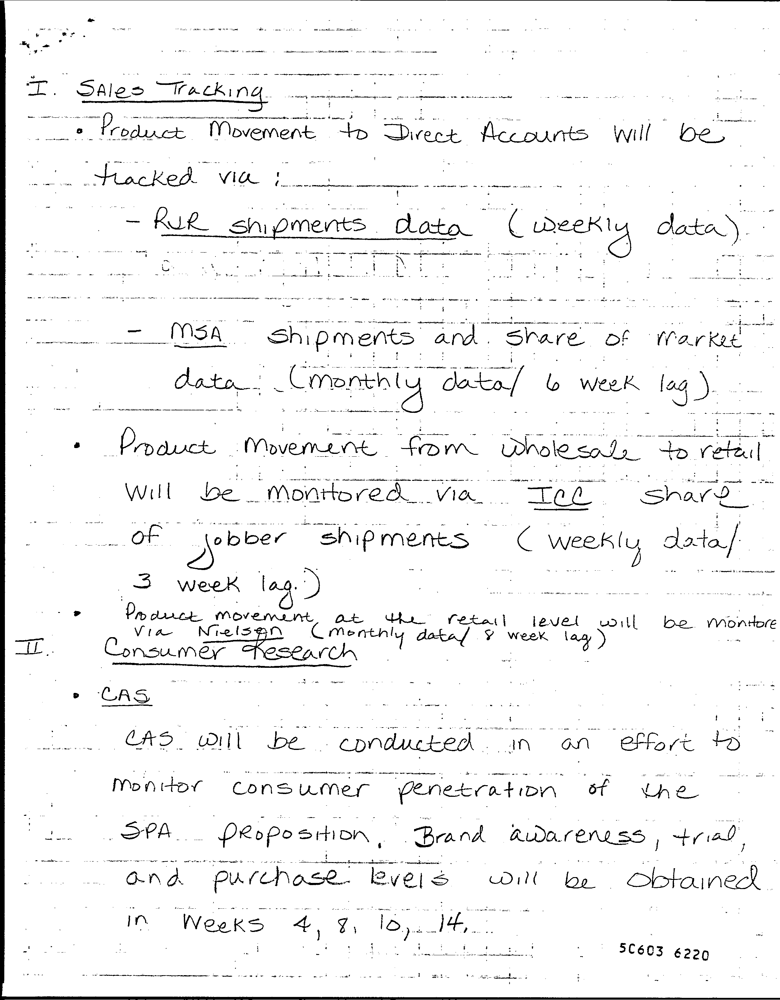 I. Sales Tracking
• Product Movement to Direct Accounts will be
tracked via :
- RJR shipments data (weekly data)
- MSA shipments and share of market
data (monthly data/ 6 week lag)
• Product Movement from wholesale to retail
will be monitored via ICC share
of jobber shipments (weekly data/
3 week lag.)
• Product movement at the retail level will be monitore
via Nielsen (monthly data/ 8 week lag)
II. Consumer Research
• CAS
CAS will be conducted in an effort to
monitor consumer penetration of the
SPA proposition. Brand awareness, trial,
and purchase levels will be obtained
in weeks 4, 8, 10, 14.
50603 6220